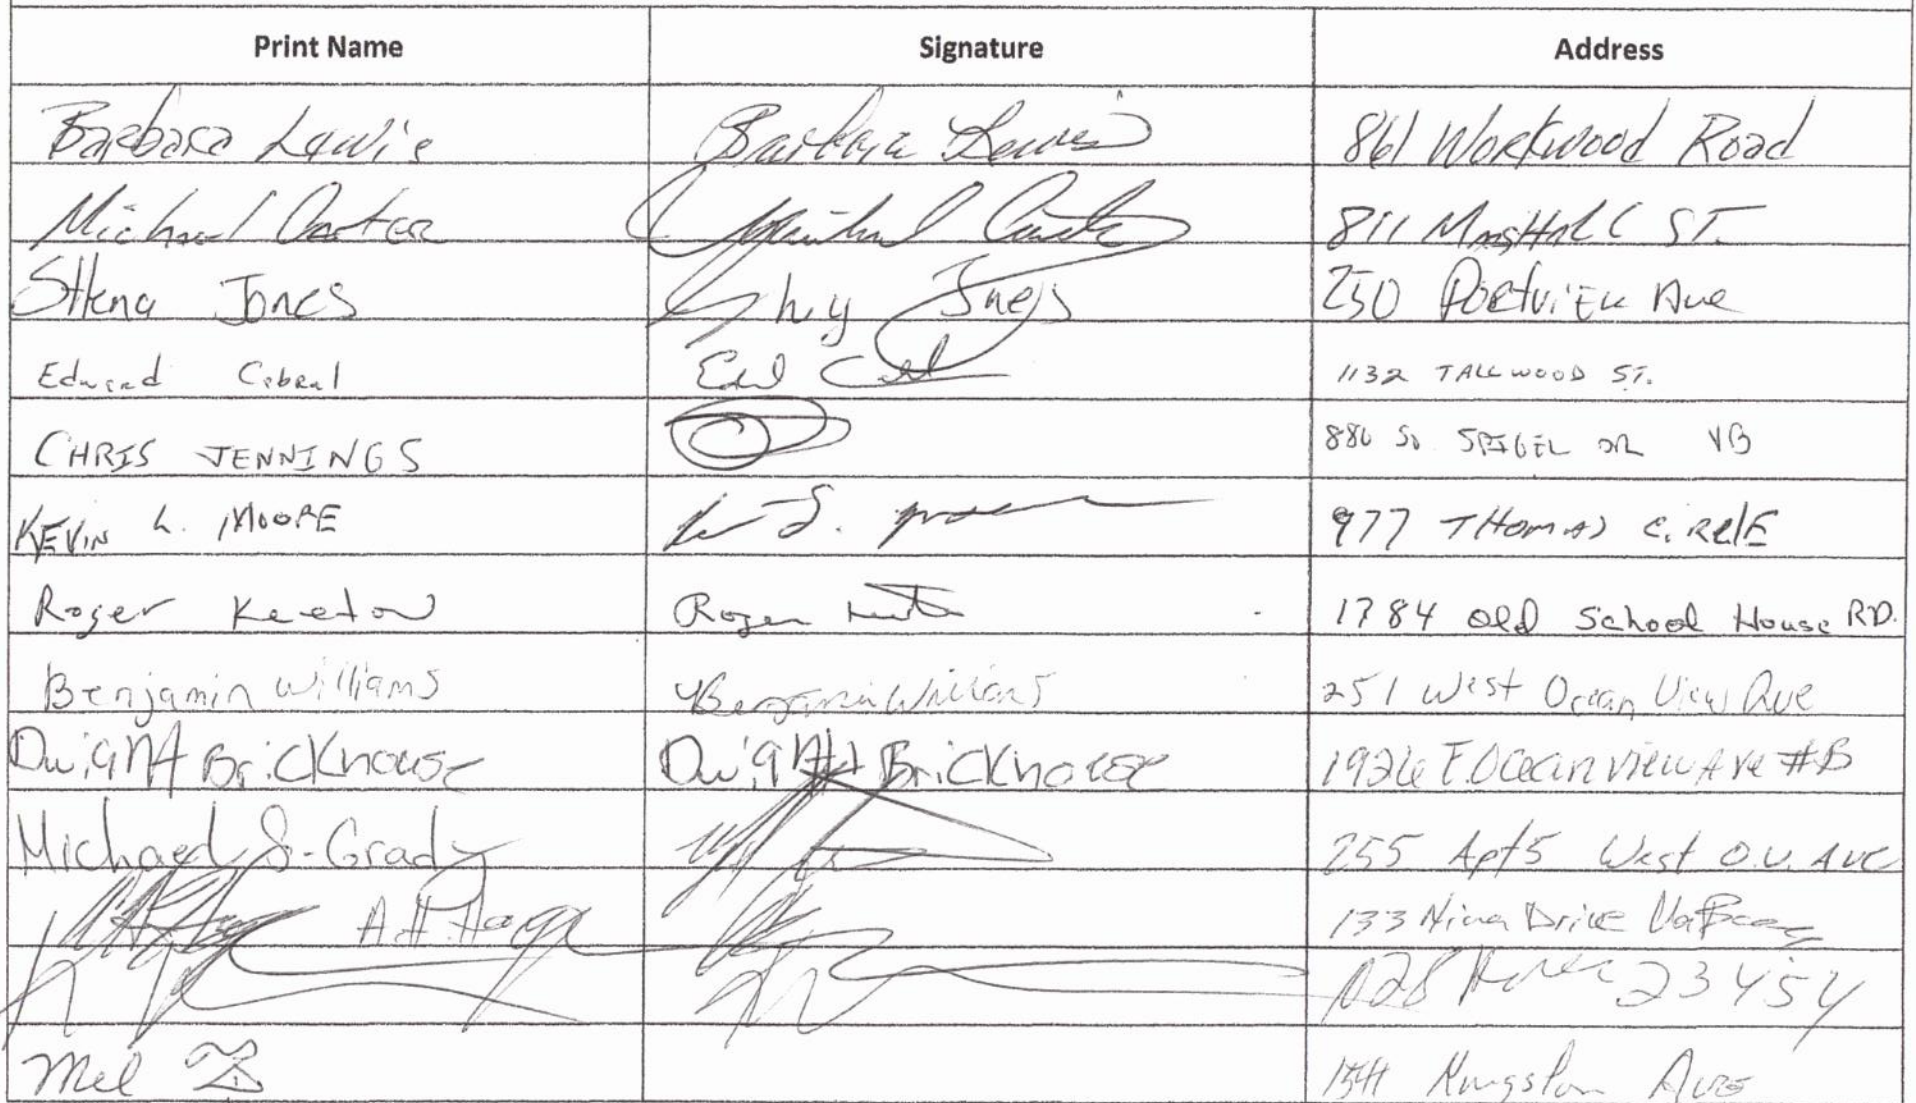 Print Name Signature Address
Barbara Lewis Barbara Lewis 861 Workwood Road
Michael Carter Michael Carter 811 Marshall ST.
Jones Jones 250 Portview Ave
Edward Cabral 1132 TALLWOOD ST.
CHRIS JENNINGS 880 So. DR VB
KEVIN L. MOORE 977 THOMAS CiRclE
Roger Keeton Roger 1784 Old School House RD.
Benjamin Williams Benjamin Williams 251 West Ocean View Ave
Dwight Brickhouse Dwight Brickhouse 1926 E. Ocean view Ave #B
Michael S. Grady 255 Apt 5 West O.V. Ave
A.H. 133 Nina Drive
23454
Mel Kingston Ave